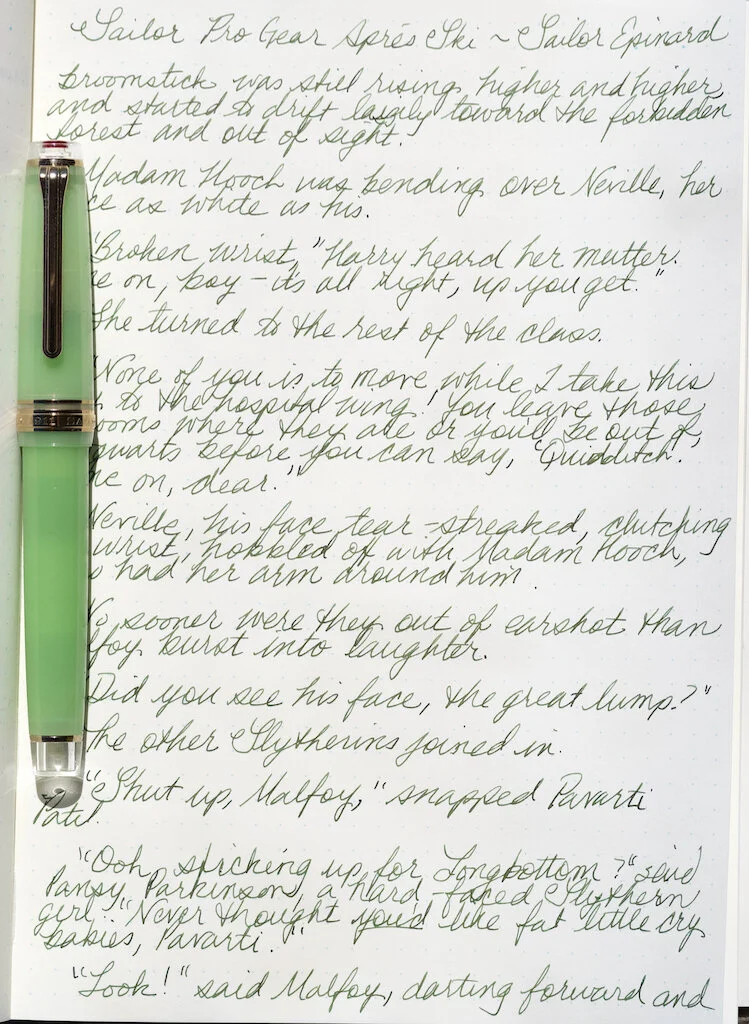 Sailor Pro Gear Aprés Ski ~ Sailor Epinard
broomstick was still rising higher and higher,
and started to drift lazily toward the forbidden
forest and out of sight.
Madam Hooch was bending over Neville, her
ce as white as his.
"Broken wrist," Harry heard her mutter.
e on, boy - it's all right, up you get."
She turned to the rest of the class.
None of you is to move while I take this
to the hospital wing! You leave those
ooms where they are or you'll be out of
gwarts before you can say, 'Quidditch'.
ne on, dear."
Neville, his face tear-streaked, clutching
wrist, hobbled of with Madam Hooch,
o had her arm around him.
No sooner were they out of earshot than
lfoy burst into laughter.
Did you see his face, the great lump?"
The other Slytherins joined in.
"Shut up, Malfoy," snapped Pavarti
Patil.
"Ooh, sticking up for Longbottom?" said
Pansy Parkinson, a hard faced Slythern
girl. "Never thought you'd like fat little cry
babies, Pavarti."
"Look!" said Malfoy, darting forward and